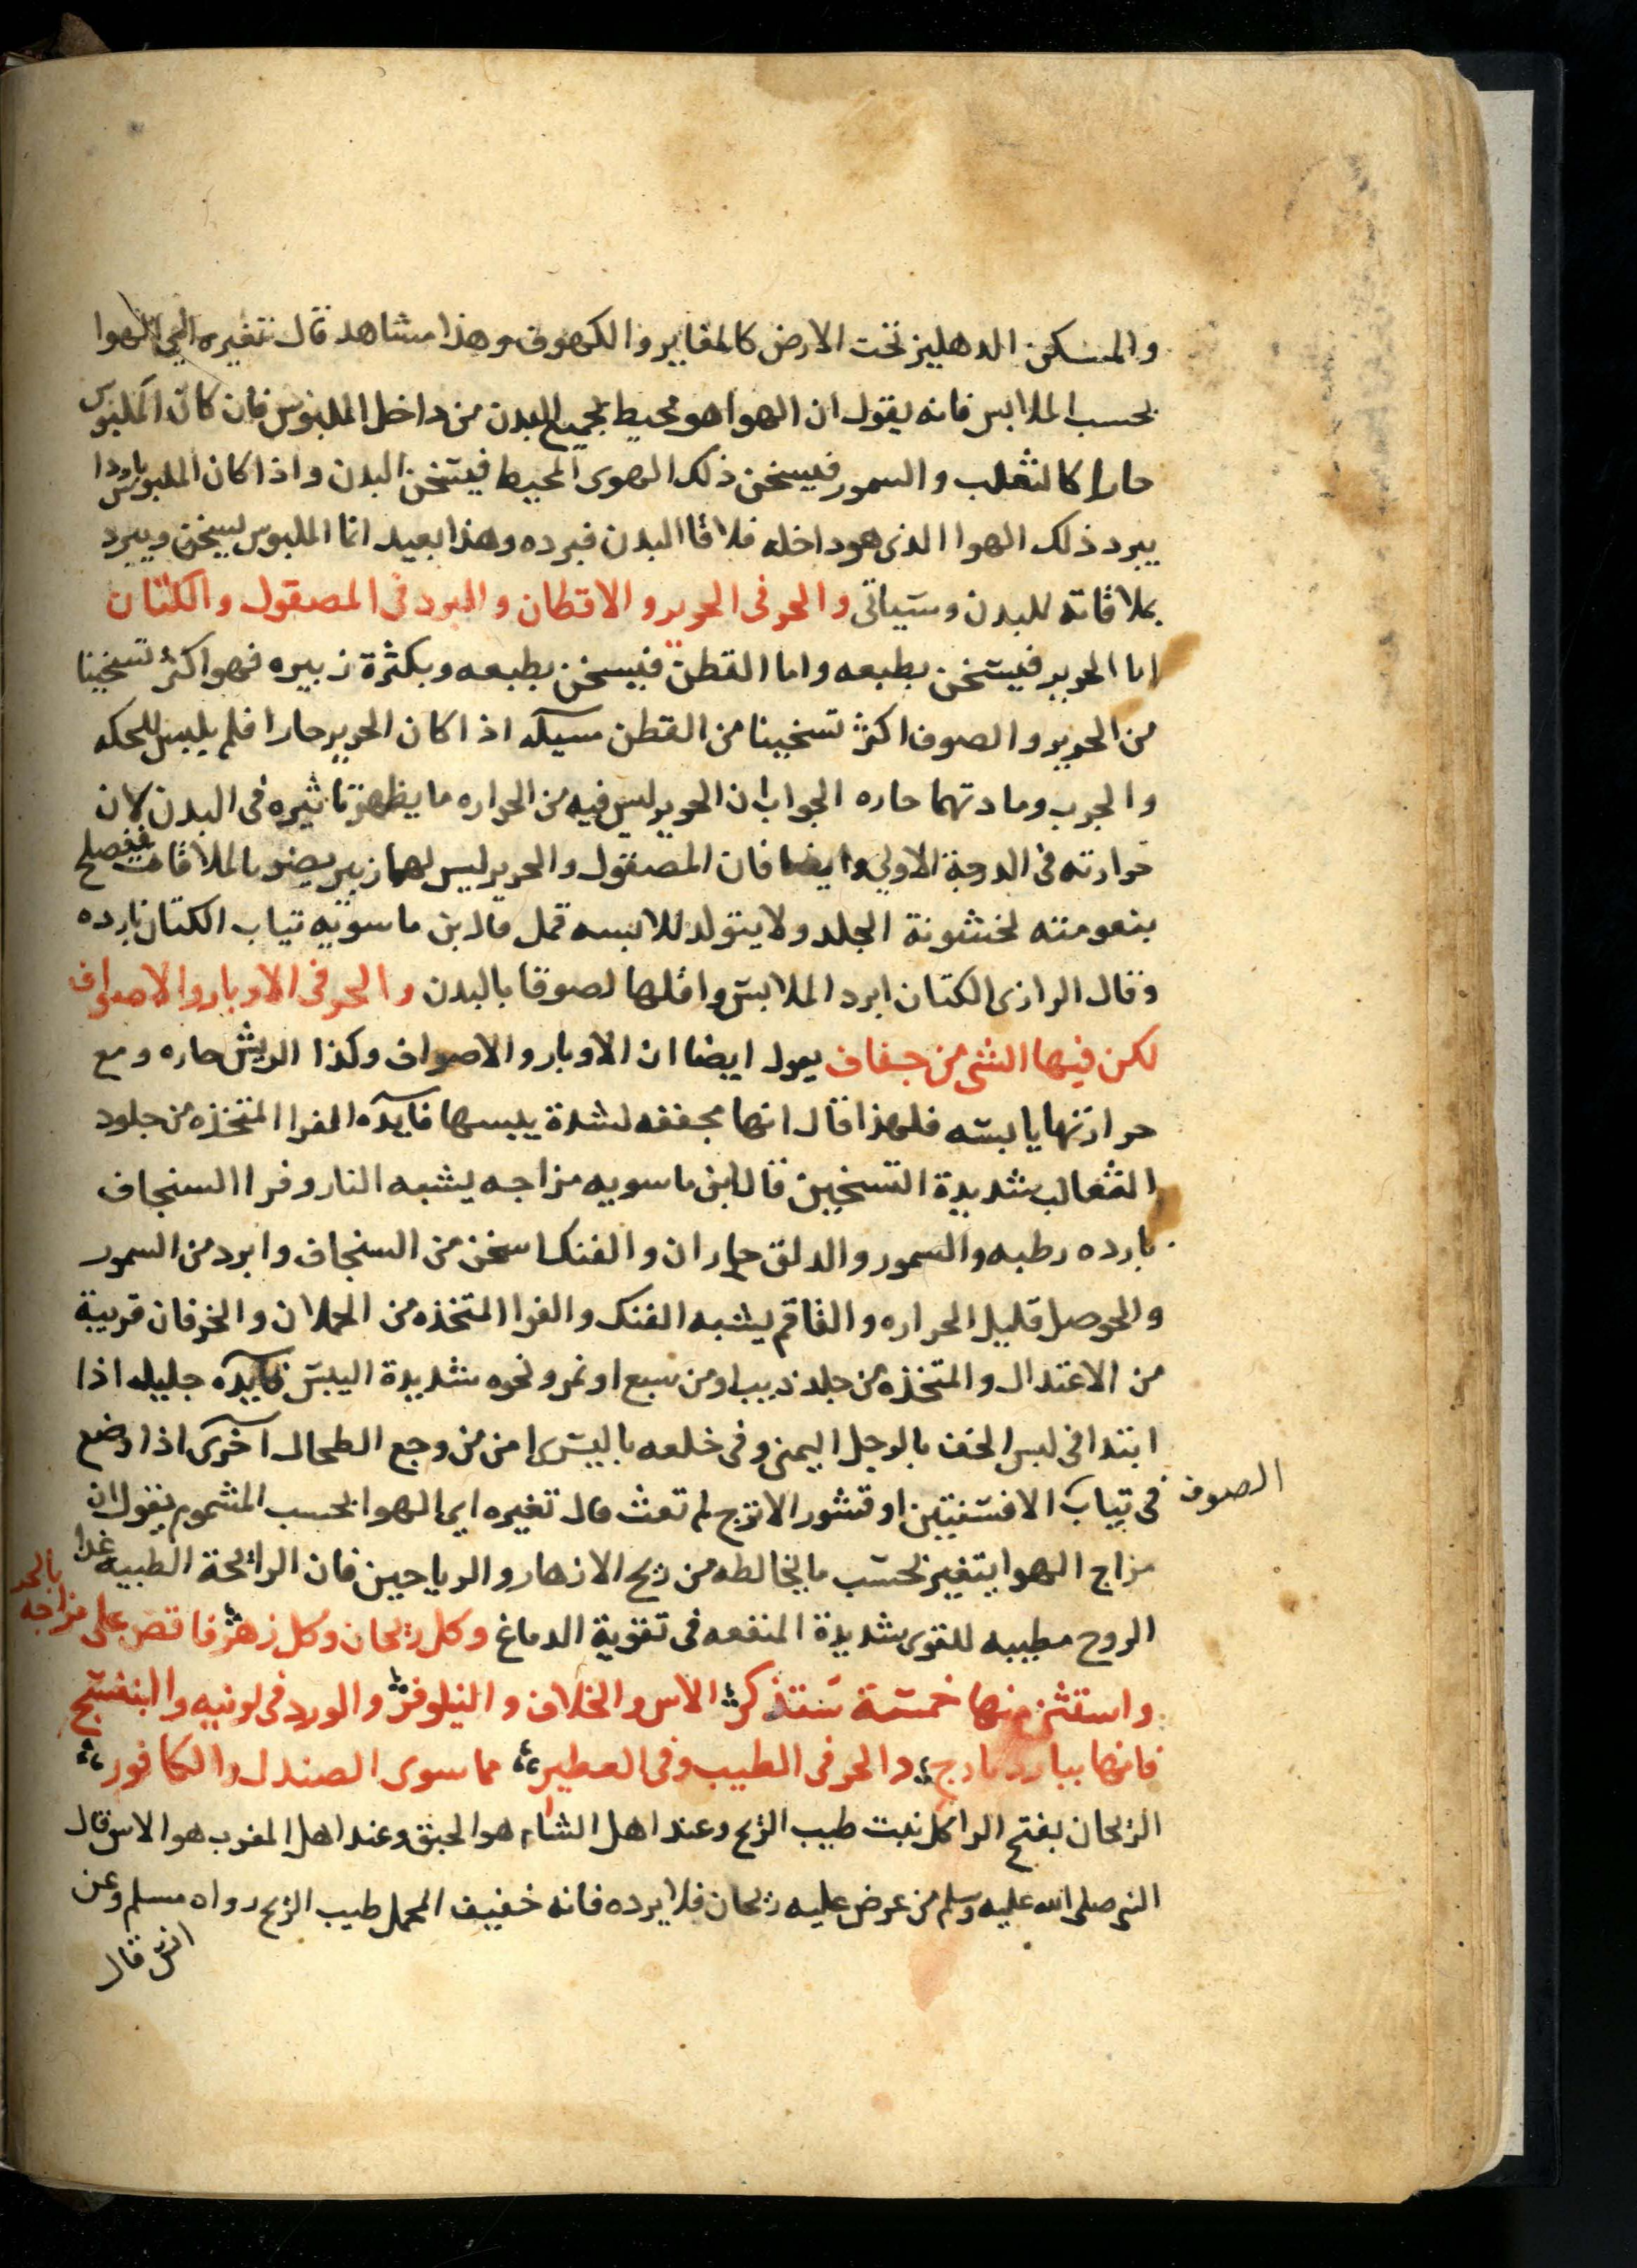 والمسكن الدهليز تحت الارض كالمقابر والكهوف وهذا مشاهد قال تغيره اي الهوا
بحسب الملابس فانه يقول ان الهوا هو محيط بجميع البدن من داخل الملبوس فان كان الملبوس
حارا كالثعلب والسمور فيسخن ذلك الهوى المحيط فيتسخن البدن واذا كان الملبوس باردا
يبرد ذلك الهوا الذى هو داخله فلاقا البدن فبرده وهذا بعيد انما الملبوس يسخن ويبرد
بملاقاته للبدن وسياتى والحر فى الحرير والاقطان والبرد فى المصقول والكتان
اما الحرير فيسخن بطبعه واما القطن فيسخن بطبعه وبكثرة زبيره فهو اكثر تسخينا
من الحرير والصوف اكثر تسخينا من القطن مسيله اذا كان الحرير حارا فلم يلبس للحكه
والجرب ومادتهما حاره الجواب ان الحرير ليس فيه من الحراره ما يظهر تاثيره فى البدن لان
حرارته فى الدرجة الاولى وايضا فان المصقول والحرير ليس لهما زبير يضر بالملاقات فيصلح
بنعومته لخشونة الجلد ولا يتولد للابسه قمل قال بن ماسويه تياب الكتان بارده
وقال الرازى الكتان ابرد الملابس واقلها لصوقا بالبدن والحر فى الاوبار والاصواف
لكن فيها الشى من جفاف يعول ايضا ان الاوبار والاصواف وكذا الريش حاره ومع
حرارتها يابسه فلهذا قال انها مجففه لشدة يبسها فايده الفرا المتخذه من جلود
الثعالب شديدة التسخين قال ابن ماسويه مزاجه يشبه النار وفرا السنجاف
بارده رطبه والسمور والدلق حاران والفنك اسخن من السنجاف وابرد من السمور
والحوصل قليل الحراره والقاقم يشبه الفنك والفرا المتخذه من الحملان والخرفان قريبة
من الاعتدال والمتخذه من جلد ذيب او من سبع او نمر ونحوه شديدة اليبس فايده جليله اذا
ابتدا فى لبس الخف بالرجل اليمنى وفى خلعه باليسرى امن من وجع الطحال اخرى اذا وضع
الصوف فى تياب الافسنتين او قشور الاترج لم تعث قال تغيره اي الهوا بحسب المشموم يقول ان
مزاج الهوا يتغير بحسب ما يخالطه من ريح الازهار والرياحين فان الرائحة الطيبه غدا
الروح مطيبه للقوى شديدة المنفعه فى تقوية الدماغ وكل ريحان وكل زهر فاقض على مزاجه بالحر
واستثن منها خمسة ستذكر الاس والخلاف والنيلوفر والورد فى لونيه والبنفسج
فانها ببارد تادرج والحر فى الطيب وفى العطير مما سوى الصندل والكافور
الريحان بفتح الرا كل نبت طيب الريح وعند اهل الشام هو الحبق وعند اهل المغرب هو الاس قال
النبى صلى الله عليه وسلم من عرض عليه ريحان فلا يرده فانه خفيف المحمل طيب الريح رواه مسلم وعن
انس قال